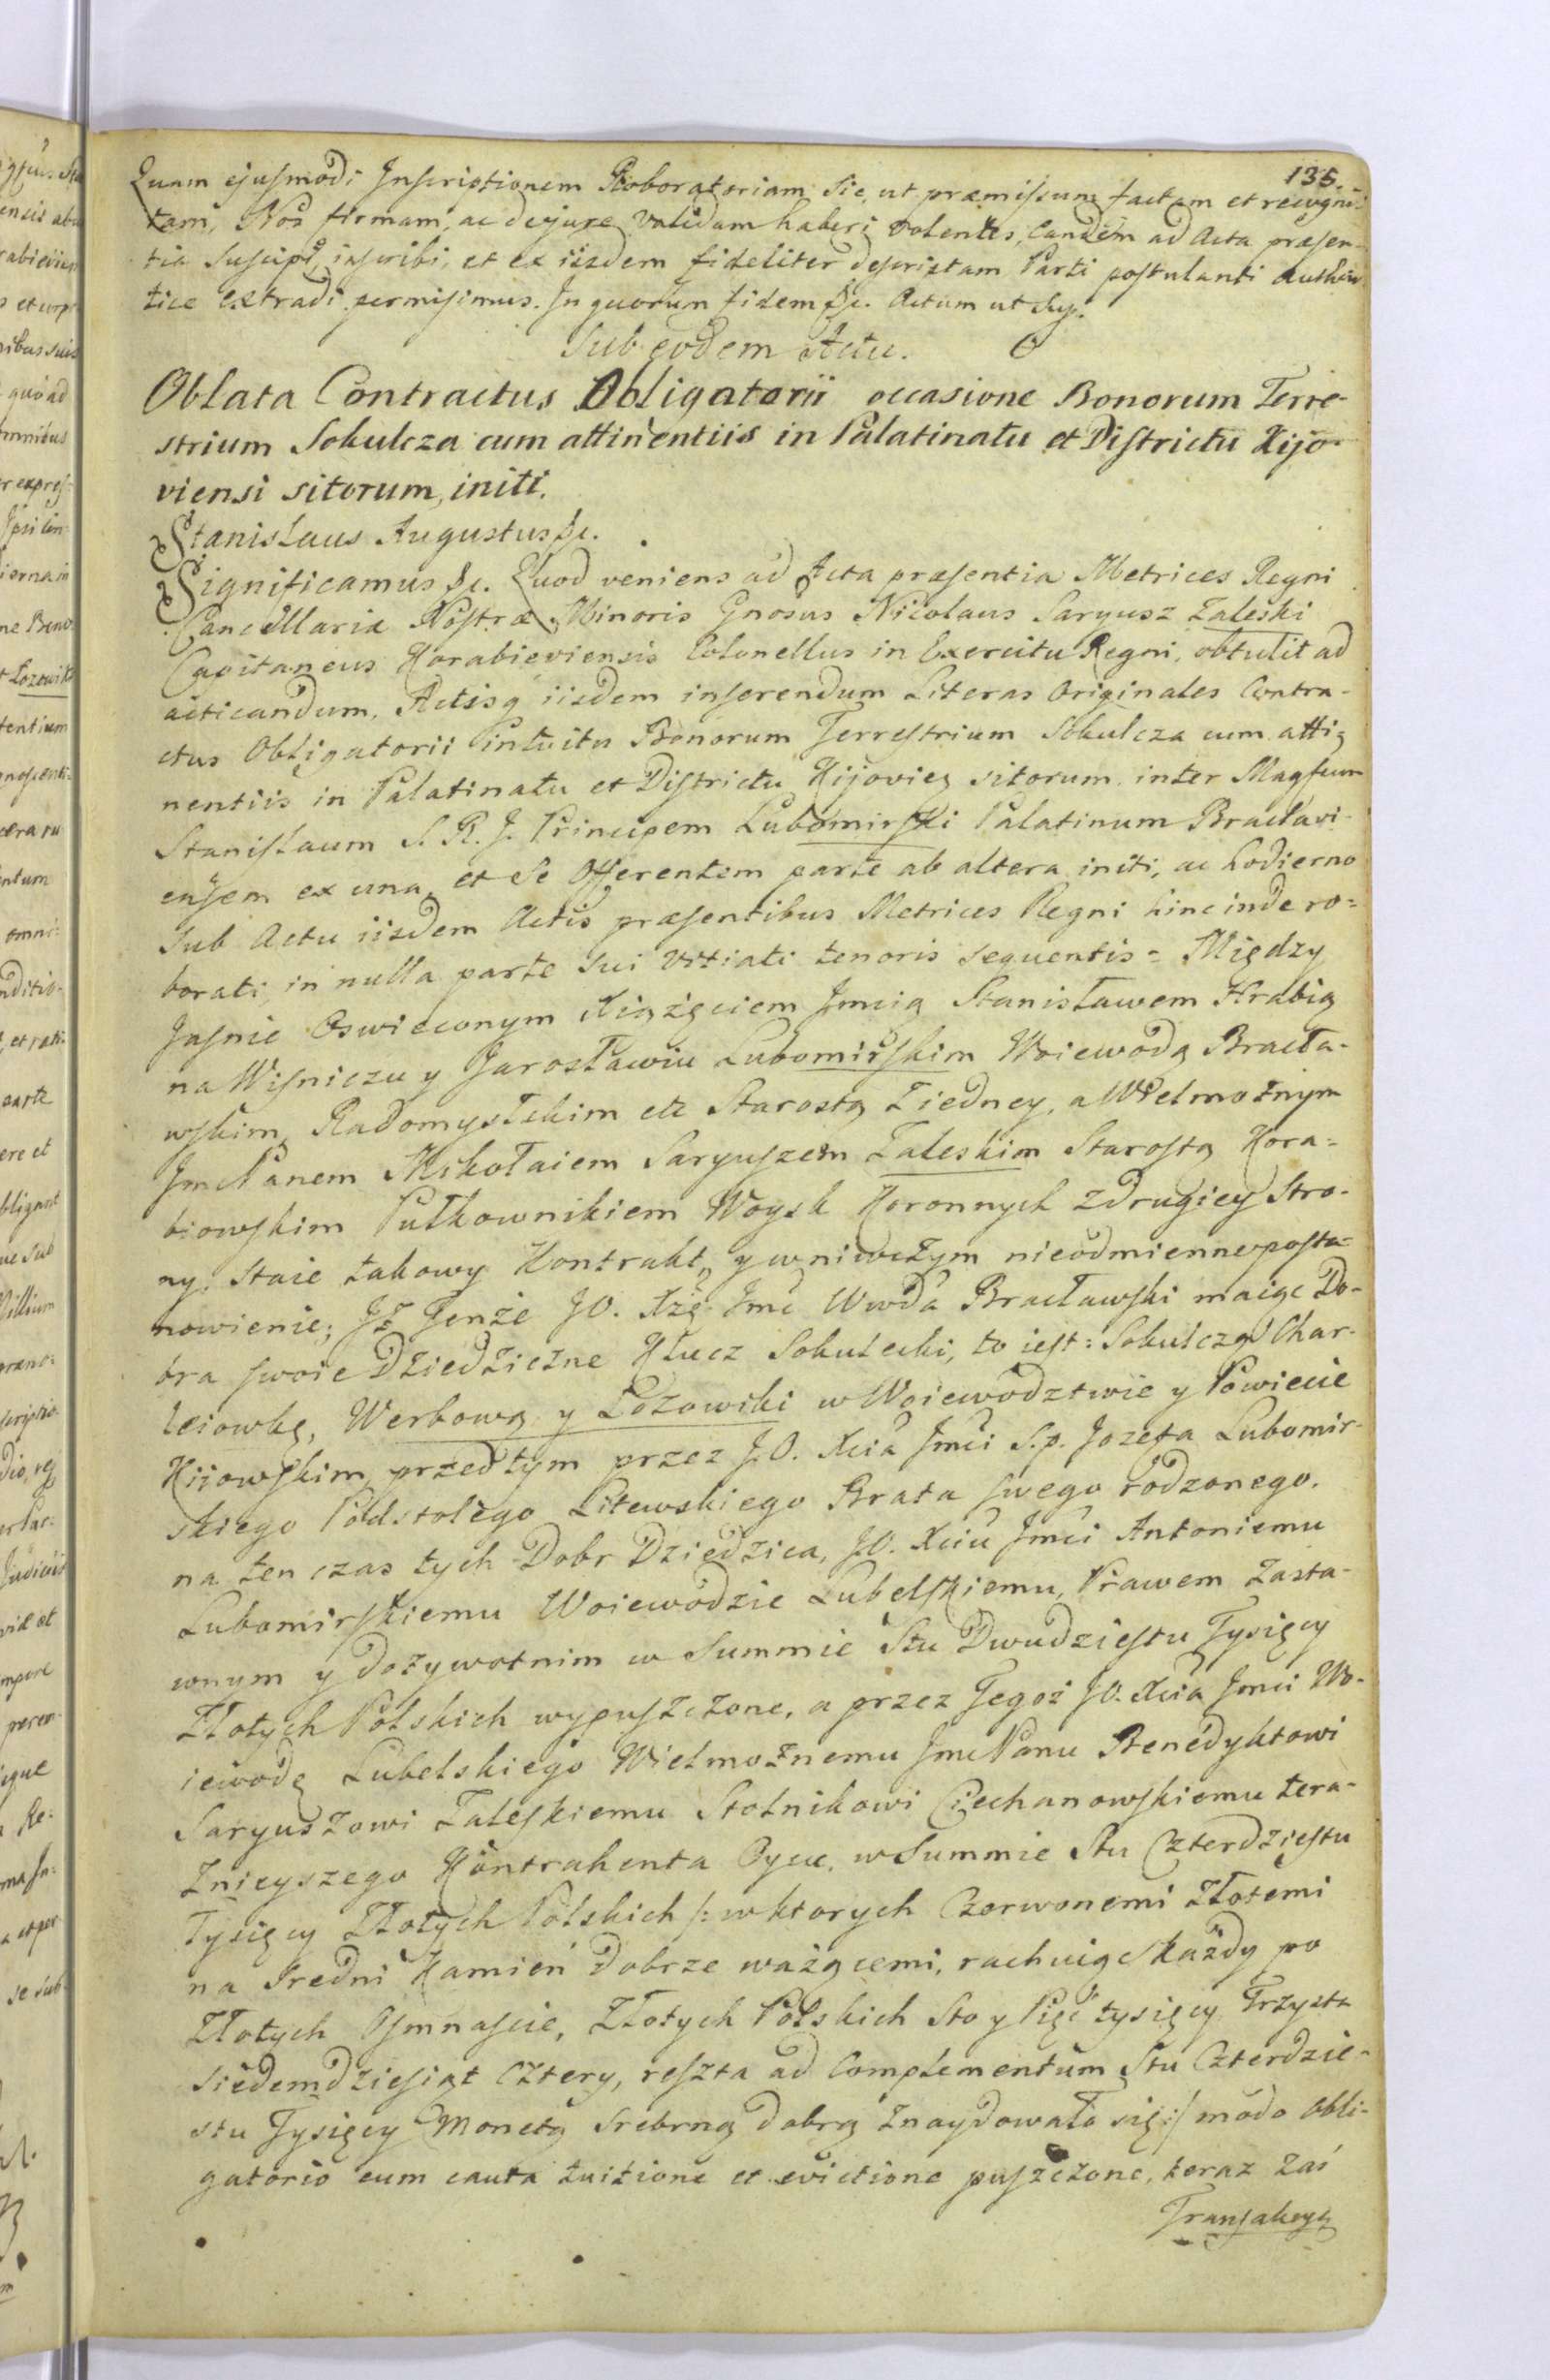 135.
Quam ejusmodi Inscriptionem Roboratoriam sic, ut præmissum factam et recogni-
tam, Nos firmam, ac dejure validam haberi volentes, Eandem ad Acta præsen-
tia suscipi, inscribi, et ex iisdem fideliter descriptam Parti postulanti authen
tice extradi permisimus. In quorum fidem &c. Actum ut Sup.
Sub eodem Actu.
Oblata Contractus Obligatorii occasione Bonorum Terre-
strium Sokulcza cum attinentiis in Palatinatu et Districtu Kijo-
viensi sitorum, initi.
Stanislaus Augustus &c.
Significamus &c. Quod veniens ad Acta præsentia Metrices Regni
Cancellariæ Nostræ Minoris Gnosus Nicolaus Saryusz Zaleski
Capitaneus Horabieviensis Colonellus in Exercitu Regni, obtulit ad
acticandum, Actisq iisdem inserendum Literas Originales Contra-
ctus Obligatorii intuitu Bonorum Terrestrium Sokulcza cum atti
nentiis in Palatinatu et Districtu Kijovien sitorum inter Magfcum
Stanislaum S. R. J. Principem Lubomirski Palatinum Braclavi-
ensem ex una, et Se Offerentem parte ab altera initi, ac hodierno
sub Actu iisdem Actis præsentibus Metrices Regni hinc inde ro=
borati, in nulla parte sui vitiati tenoris sequentis = Między
Jasnie Oswieconym Xiążęciem Jmcią Stanisławem Hrabią
na Wisniczu y Jarosławiu Lubomirskim Woiewodą Bracła-
wskim, Radomyslskim etc Starostą z iedney, a Wielmożnym
Jmc Panem Mikołaiem Saryuszem Zaleskim Starostą Hora=
biowskim Pułkownikiem Woysk Koronnych z drugiey Stro-
ny, staie takowy Kontrakt, y w niwczym nieodmienne posta=
nowienie; Iż Tenże J.O. Xżę Jmć Wwda Bracławski maiąc Do-
bra swoie Dziedziczne Klucz Sokulecki, to iest: Sokulczą Char-
leiowkę, Werbową y Łozowiki w Woiewodztwie y Powiecie
Kiiowskim, przed tym przez J.O. Xcia Jmci S.p. Jozefa Lubomir-
skiego Podstolego Litewskiego Brata swego rodzonego.
na ten czas tych Dobr Dziedzica, J.O. Xciu Jmci Antoniemu
Lubomirskiemu Woiewodzie Lubelskiemu, Prawem Zasta-
wnym y dożywotnim w Summie Stu Dwudziestu Tysięcy
Złotych Polskich wypuszczone, a przez Tegoż J.O. Xcia Jmci Wo-
iewodę Lubelskiego Wielmożnemu Jmc Panu Benedyktowi
Saryuszowi Zaleskiemu Stolnikowi Ciechanowskiemu tera-
znieyszego Kontrahenta Oycu, w Summie Stu Czterdziestu
Tysięcy Złotych Polskich /: w ktorych Czerwonemi Złotemi
na sredni Kamień dobrze ważącemi, rachuiąc każdy po
Złotych Osmnascie, Złotych Polskich Sto y Pięć tysięcy Trzysta
siedemdziesiąt Cztery, reszta ad Complementum Stu Czterdzie-
stu Tysięcy Monetą srebrną dobrą znaydowała się :/ modo Obli-
gatorio cum cauta tuitione et evictione puszczone, teraz zaś
Transakcyą